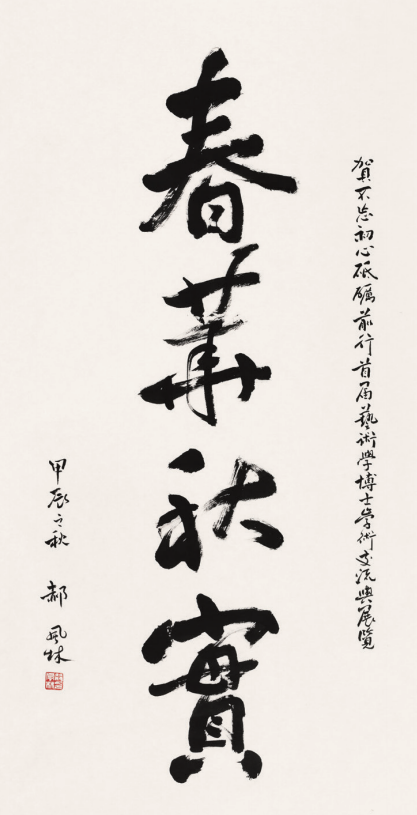 賀不忘初心砥礪前行首届藝術學博士學術交流與展覽
春華秋實
甲辰之秋 郝風林